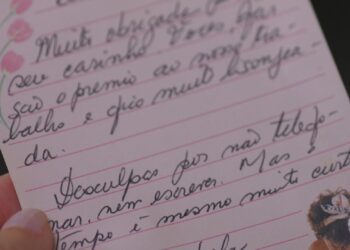 Muito obrigada
seu carinho. Vocês,
são o premio ao nosso tra-
balho e fico muito lisonjea-
da.
Desculpas por não telefo-
nar, nem escrever. Mas o
tempo é mesmo muito curt